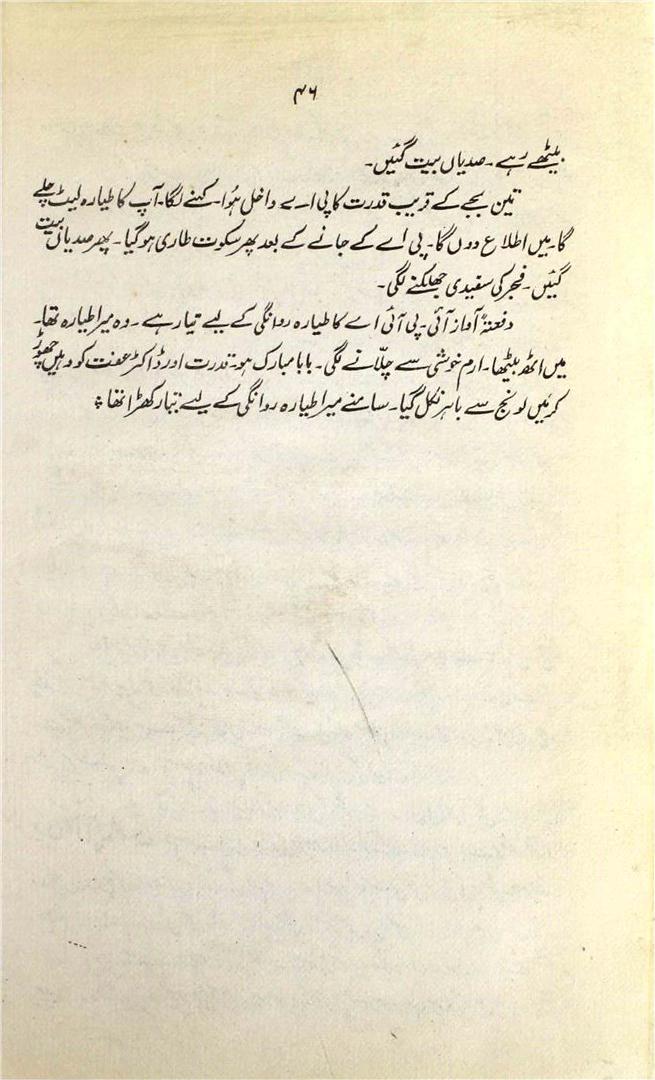 ۴۶
بیٹھے رہے۔ صدیاں بیت گئیں۔
تین بجے کے قریب قدرت کا پی اے داخل ہُوا۔ کہنے لگا۔ آپ کا طیارہ لیٹ چلے
گا۔ میں اطلاع دوں گا۔ پی اے کے جانے کے بعد پھر سکوت طاری ہو گیا۔ پھر صدیاں بیت
گئیں۔ فجر کی سفیدی جھلکنے لگی۔
دفعتہً آواز آئی۔ پی آئی اے کا طیارہ روانگی کے لیے تیار ہے۔ وہ میرا طیارہ تھا۔
میں اٹھ بیٹھا۔ ارم خوشی سے چلّانے لگی۔ بابا مبارک ہو۔ قدرت اور ڈاکٹر عفت کو وہیں چھوڑ
کر میں لونج سے باہر نکل گیا۔ سامنے میرا طیارہ روانگی کے لیے تیار کھڑا تھا ؞